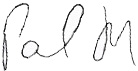 Pal M